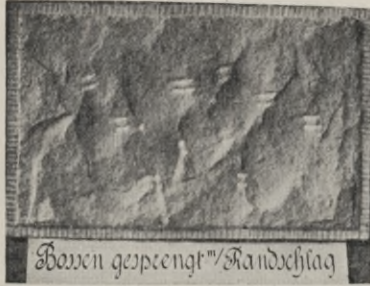 Bossen gesprengt m/Randschlag